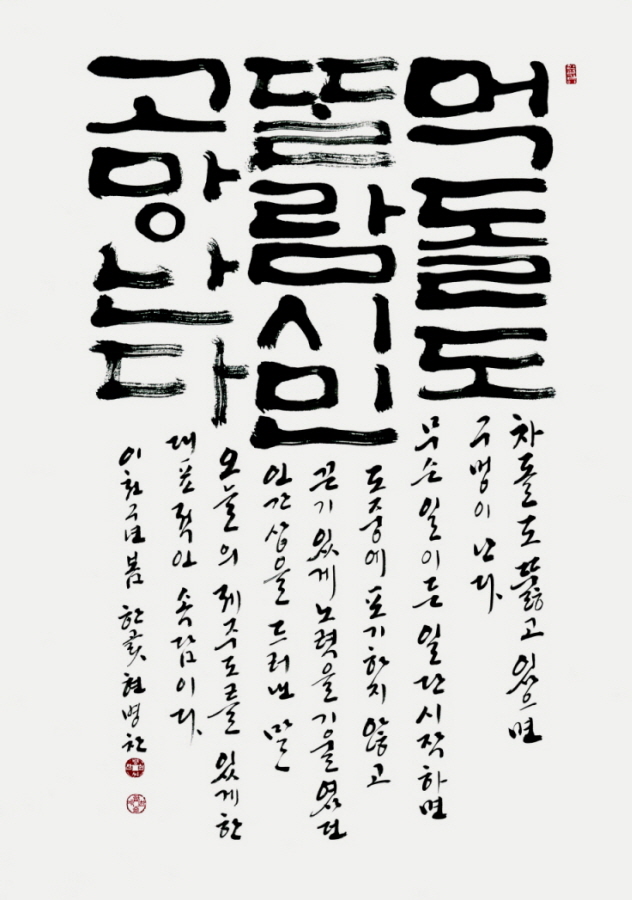 먹돌도
뚤람시민
고망난다
차돌도 뚫고 있으면
구멍이 난다.
무슨 일이든 일단 시작하면
도중에 포기하지 않고
끈기 있게 노력을 기울였던
인간상을 드러낸 말
오늘의 제주도를 있게 한
대표적인 속담이다.
이천구년 봄 한곬 현병찬